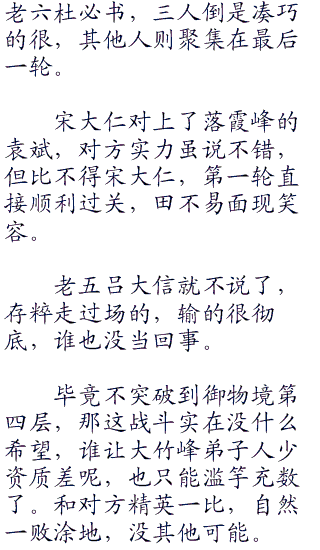 老六杜必书，三人倒是凑巧
的很，其他人则聚集在最后
一轮。
宋大仁对上了落霞峰的
袁斌，对方实力虽说不错，
但比不得宋大仁，第一轮直
接顺利过关，田不易面现笑
容。
老五吕大信就不说了，
存粹走过场的，输的很彻
底，谁也没当回事。
毕竟不突破到御物境第
四层，那这战斗实在没什么
希望，谁让大竹峰弟子人少
资质差呢，也只能滥竽充数
了。和对方精英一比，自然
一败涂地，没其他可能。